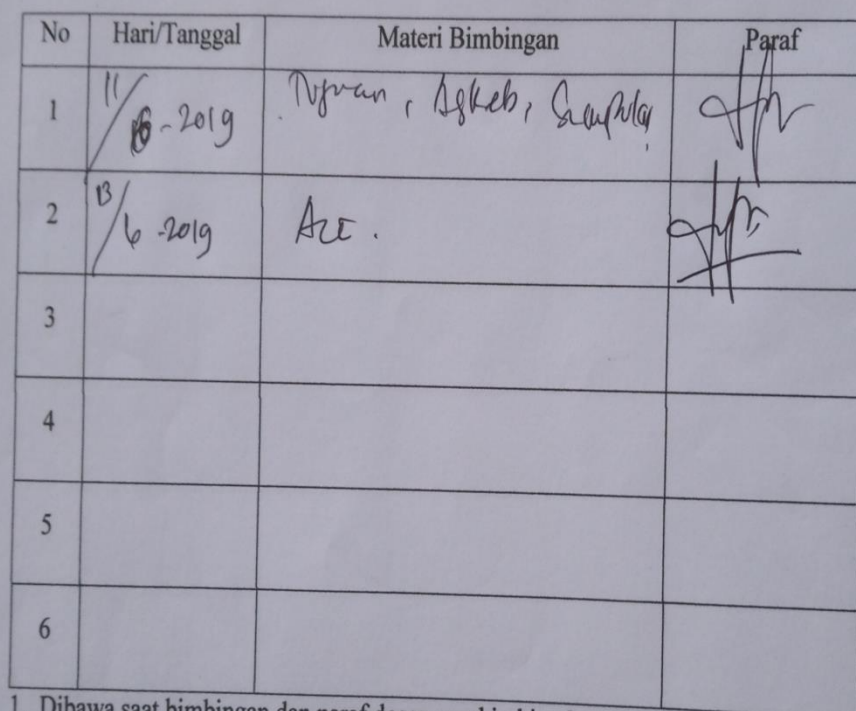 No Hari/Tanggal Materi Bimbingan Paraf
1 11/6-2019 Tujuan, Askeb, Simpulan
2 13/6-2019 Acc.
3
4
5
6
1. Dibawa saat bimbingan dan paraf